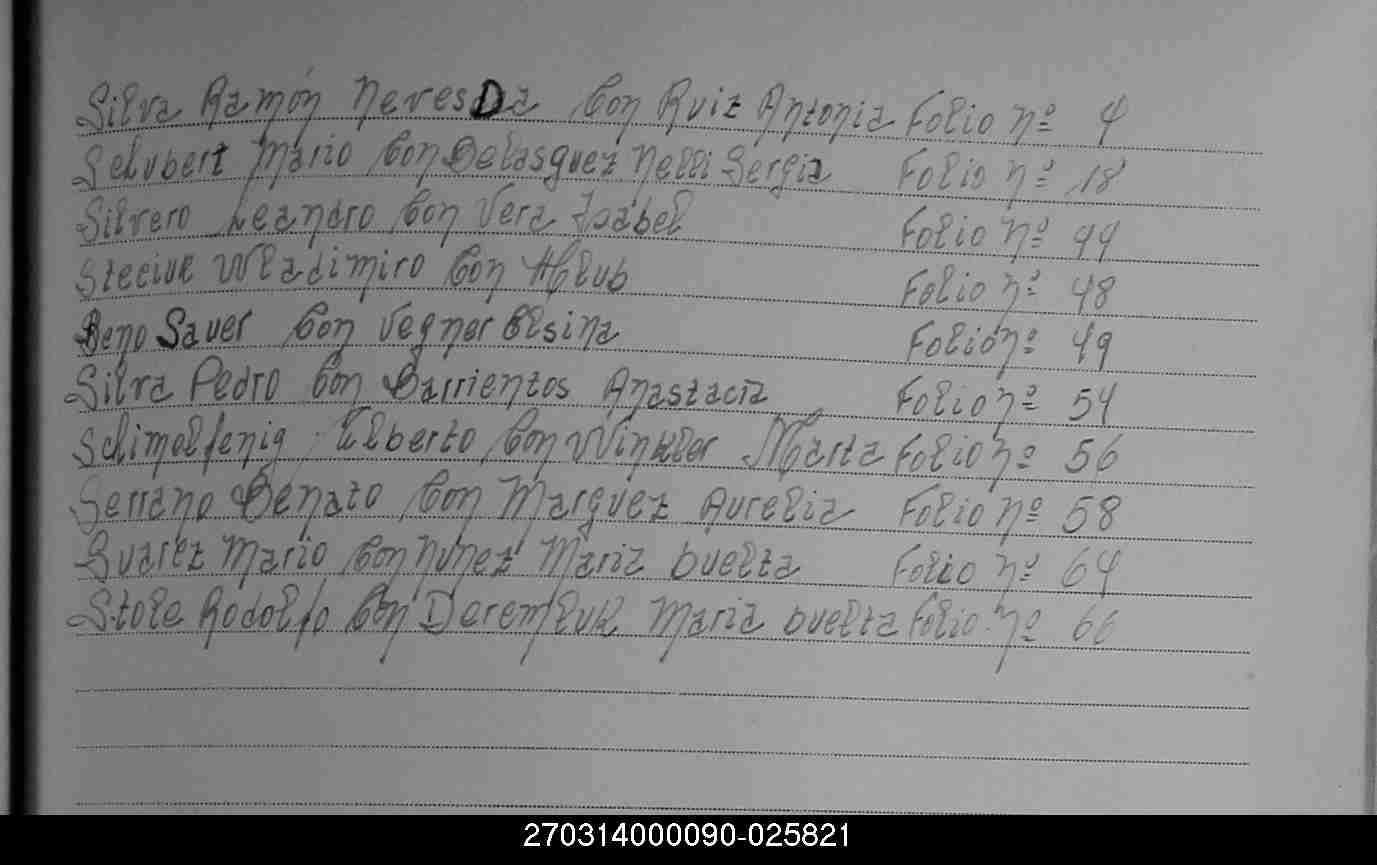 Silva Ramón Neves Da Con Ruiz Antonia Folio nº 4
Schubert Mario Con Belasquez Nelli Sergia Folio nº 18
Silvero Leandro Con Vera Isabel Folio nº 44
Steciuk Wladimiro Con Hlub Folio nº 48
Beno Sauer Con Vegner Elsina Folio nº 49
Silva Pedro Con Barrientos Anastacia Folio nº 54
Schimelfenig Elberto Con Winkler Marta Folio nº 56
Serrano Benato Con Marquez Aurelia Folio nº 58
Suarez Mario Con Nunez Maria buelta Folio nº 64
Stole Rodolfo Con Deremluk Maria buelta Folio nº 66
270314000090-025821